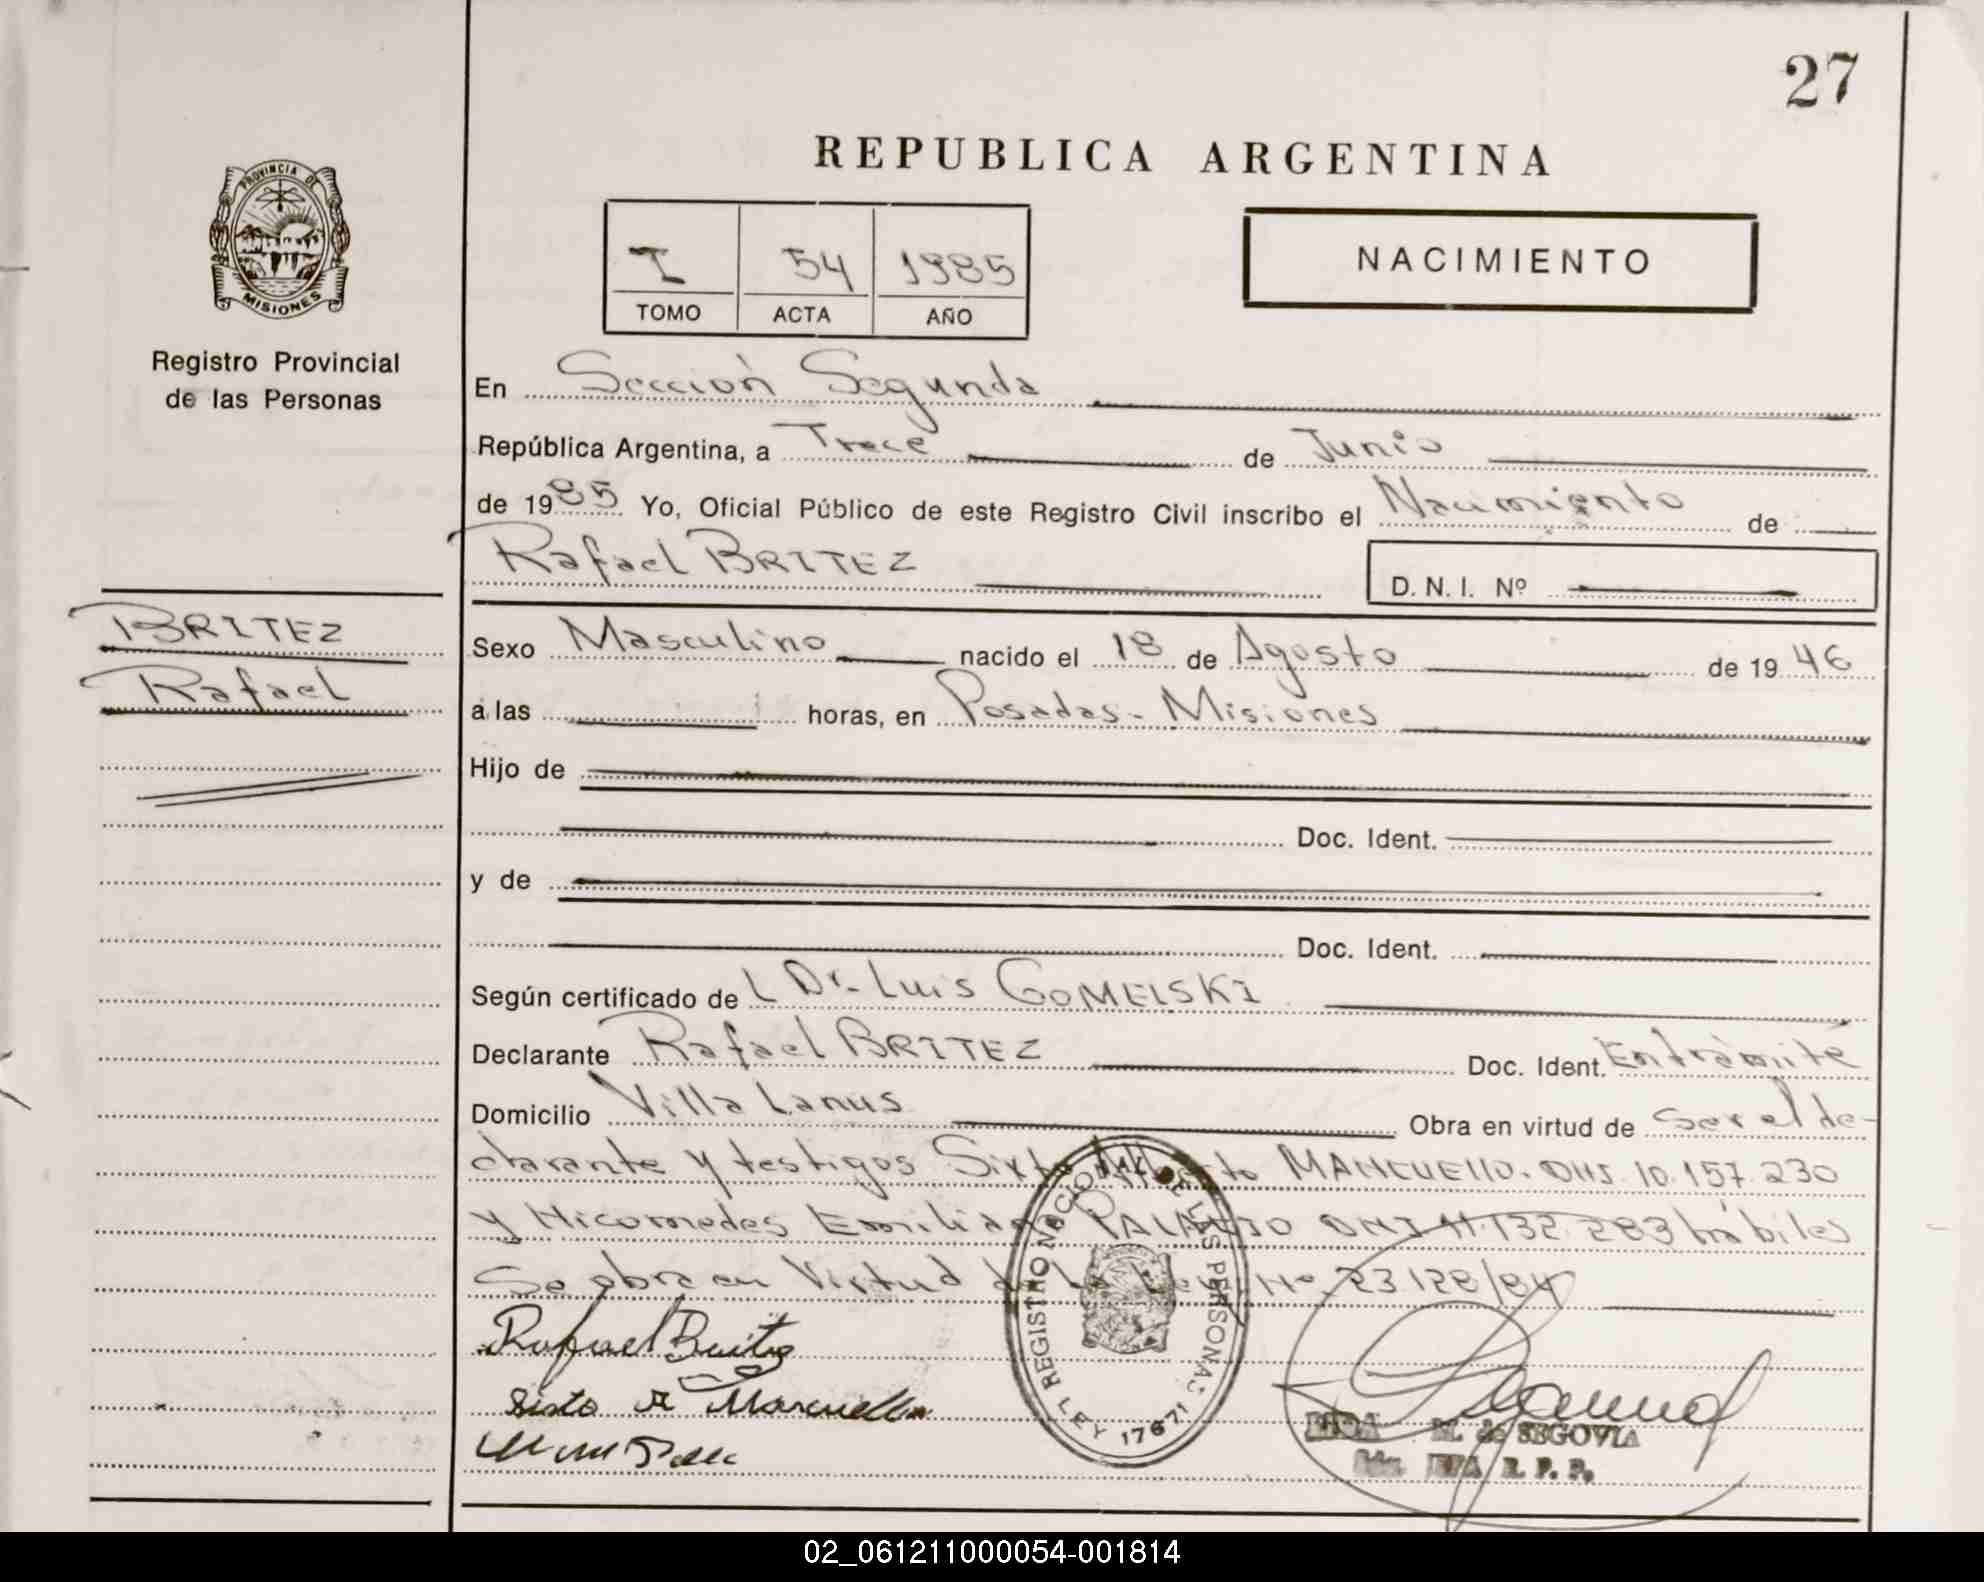 27
REPUBLICA ARGENTINA
PROVINCIA DE
MISIONES
Registro Provincial
de las Personas
I 54 1985
TOMO ACTA AÑO
NACIMIENTO
En Sección Segunda
República Argentina, a Trece de Junio
de 1985 Yo, Oficial Público de este Registro Civil inscribo el Nacimiento de
Rafael BRITEZ D.N.I. Nº
BRITEZ
Rafael
Sexo Masculino nacido el 18 de Agosto de 1946
a las horas, en Posadas - Misiones
Hijo de
Doc. Ident.
y de
Doc. Ident.
Según certificado de L Dr. Luis GOMELSKI
Declarante Rafael BRITEZ Doc. Ident. En trámite
Domicilio Villa Lanus Obra en virtud de ser el de-
clarante y testigos Sixto MANCUELLO. DNI. 10.157.230
y Nicomedes Emiliano PALACIO DNI 11.132.283 hábiles
Se obra en Virtud de la Ley Nº 23.128/84
Rafael Britez
Sisto A Mancuello
REGISTRO NACIONAL DE LAS PERSONAS
LEY 17671
M. de SEGOVIA
JEFA R. P. P.
02_061211000054-001814